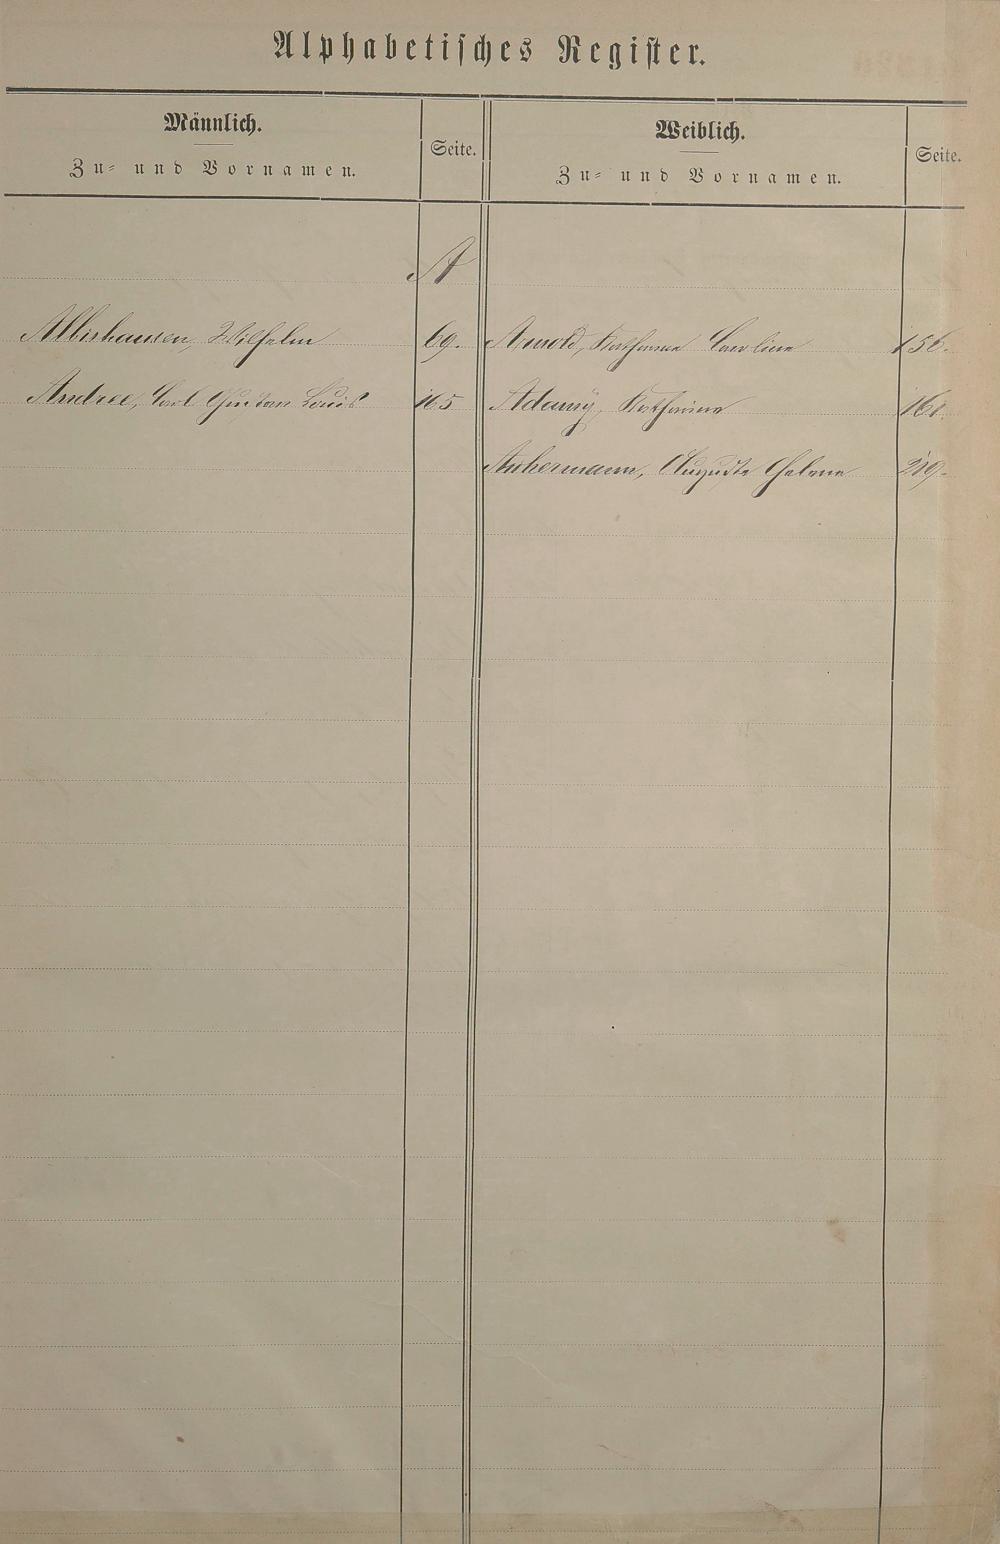 Alphabetisches Register.
Männlich.
Zu- und Vornamen.
Seite.
Weiblich.
Zu- und Vornamen.
Seite.
A
Albishausen, Wilhelm 69.
Arnold, Katharine Caroline 156.
Andree, Carl Gustav Louis 165
Adamÿ, Katharine
Ankermann, Auguste Helene 219.